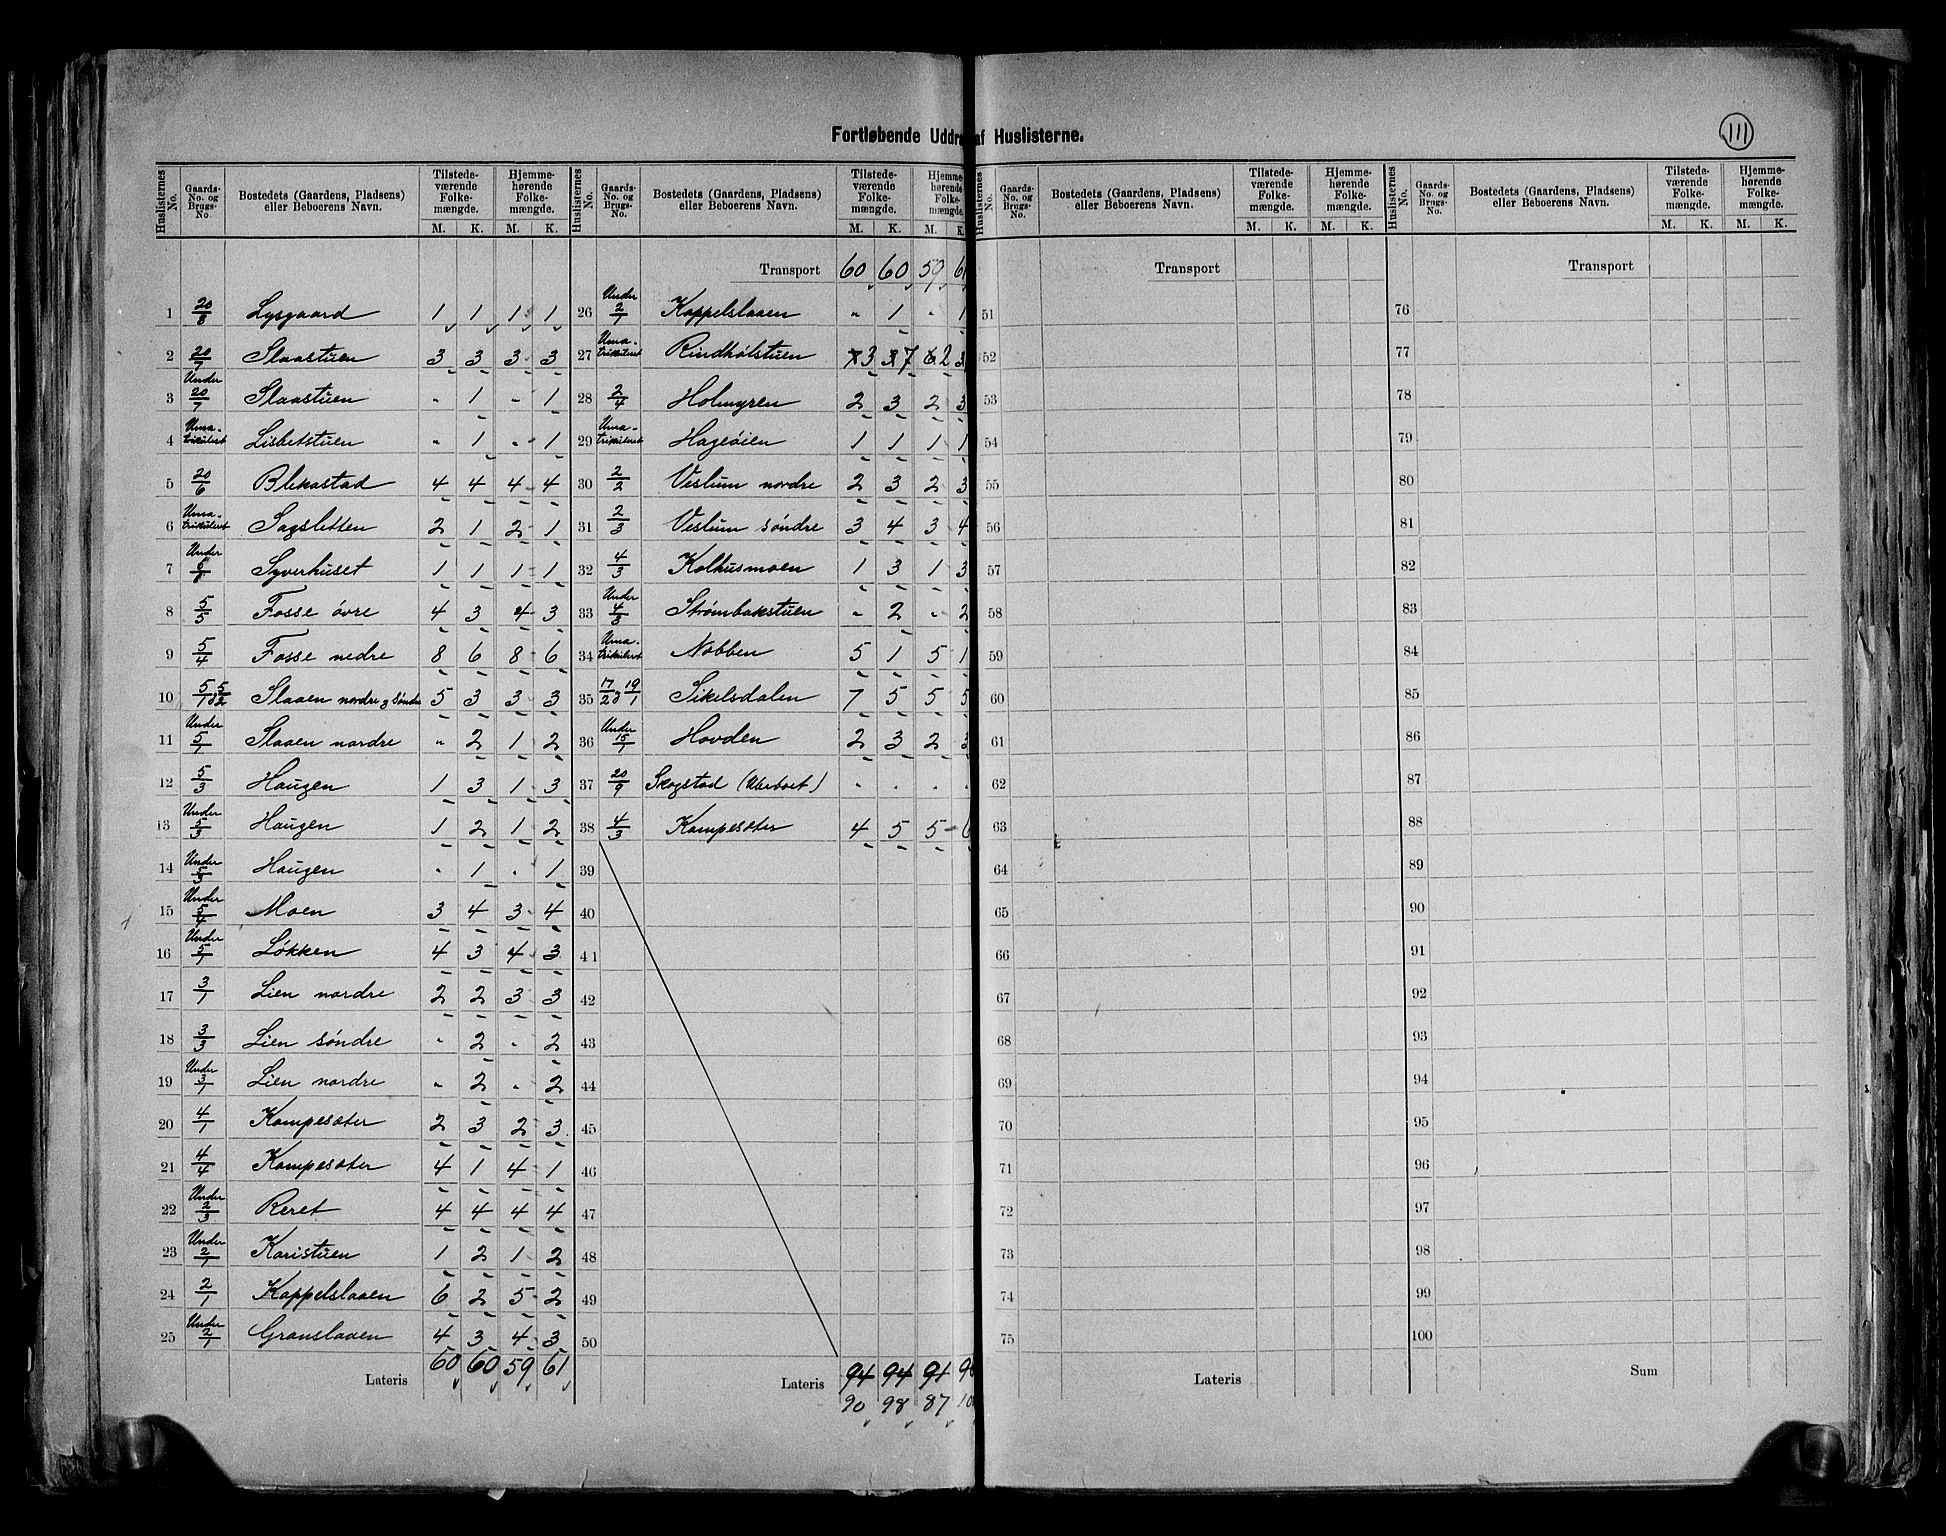 Fortløbende Uddra af Huslisterne.
111
Huslisternes No. | Gaards-No. og Brugs-No. | Bostedets (Gaardens, Pladsens) eller Beboerens Navn. | Tilstede-værende Folke-mængde. M. K. | Hjemme-hørende Folke-mængde. M. K.
1 | 20/8 | Lysgaard | 1 | 1 | 1 | 1
2 | 20/7 | Slaastuen | 3 | 3 | 3 | 3
3 | Under 20/7 | Slaastuen | " | 1 | " | 1
4 | Uma-trikuleret | Lisbetstuen | " | 1 | " | 1
5 | 20/6 | Blekastad | 4 | 4 | 4 | 4
6 | Uma-trikuleret | Sagsletten | 2 | 1 | 2 | 1
7 | Under | Syverhuset | 1 | 1 | 1 | 1
8 | 5/5 | Fosse øvre | 4 | 3 | 4 | 3
9 | 5/4 | Fosse nedre | 8 | 6 | 8 | 6
10 | 5/1 & 5/2 | Slaaen nordre & søndre | 5 | 3 | 3 | 3
11 | Under 5/1 | Slaaen nordre | " | 2 | 1 | 2
12 | 5/3 | Haugen | 1 | 3 | 1 | 3
13 | Under 5/3 | Haugen | 1 | 2 | 1 | 2
14 | Under 5/3 | Haugen | " | 1 | " | 1
15 | Under 5/4 | Moen | 3 | 4 | 3 | 4
16 | Under 5/1 | Løkken | 4 | 3 | 4 | 3
17 | 3/1 | Lien nordre | 2 | 2 | 3 | 3
18 | 3/3 | Lien søndre | " | 2 | " | 2
19 | Under 3/1 | Lien nordre | " | 2 | " | 2
20 | 4/1 | Kampesæter | 2 | 3 | 2 | 3
21 | 4/4 | Kampesæter | 4 | 1 | 4 | 1
22 | Under 2/3 | Reret | 4 | 4 | 4 | 4
23 | Under 2/1 | Karistuen | 1 | 2 | 1 | 2
24 | 2/1 | Kappelslaaen | 6 | 2 | 5 | 2
25 | Under 2/1 | Granslaaen | 4 | 3 | 4 | 3
Lateris | 60 | 60 | 59 | 61
Huslisternes No. | Gaards-No. og Brugs-No. | Bostedets (Gaardens, Pladsens) eller Beboerens Navn. | Tilstede-værende Folke-mængde. M. K. | Hjemme-hørende Folke-mængde. M. K.
Transport | 60 | 60 | 59 | 61
26 | Under 2/1 | Kappelslaaen | " | 1 | " | 1
27 | Uma-trikuleret | Rindhølstuen | 3 | 7 | 2 | 3
28 | 2/4 | Holmyren | 2 | 3 | 2 | 3
29 | Uma-trikuleret | Hageøien | 1 | 1 | 1 | 1
30 | 2/2 | Veslum nordre | 2 | 3 | 2 | 3
31 | 2/3 | Veslum søndre | 3 | 4 | 3 | 4
32 | 4/3 | Kolhusmoen | 1 | 3 | 1 | 3
33 | Under 4/3 | Strømbakstuen | " | 2 | " | 2
34 | Uma-trikuleret | Nabben | 5 | 1 | 5 | 1
35 | 17/2 & 19/1 | Sikelsdalen | 7 | 5 | 5 | 5
36 | Under 15/1 | Hovden | 2 | 3 | 2 | 3
37 | 20/9 | Skogstad (Ubeboet) | " | " | " | "
38 | 4/3 | Kampesæter | 4 | 5 | 5 | 6
39
40
41
42
43
44
45
46
47
48
49
50
Lateris | 94 | 94 | 91 | 9
90 | 98 | 87 | 10
Huslisternes No. | Gaards-No. og Brugs-No. | Bostedets (Gaardens, Pladsens) eller Beboerens Navn. | Tilstede-værende Folke-mængde. M. K. | Hjemme-hørende Folke-mængde. M. K.
Transport
51
52
53
54
55
56
57
58
59
60
61
62
63
64
65
66
67
68
69
70
71
72
73
74
75
Lateris
Huslisternes No. | Gaards-No. og Brugs-No. | Bostedets (Gaardens, Pladsens) eller Beboerens Navn. | Tilstede-værende Folke-mængde. M. K. | Hjemme-hørende Folke-mængde. M. K.
Transport
76
77
78
79
80
81
82
83
84
85
86
87
88
89
90
91
92
93
94
95
96
97
98
99
100
Sum